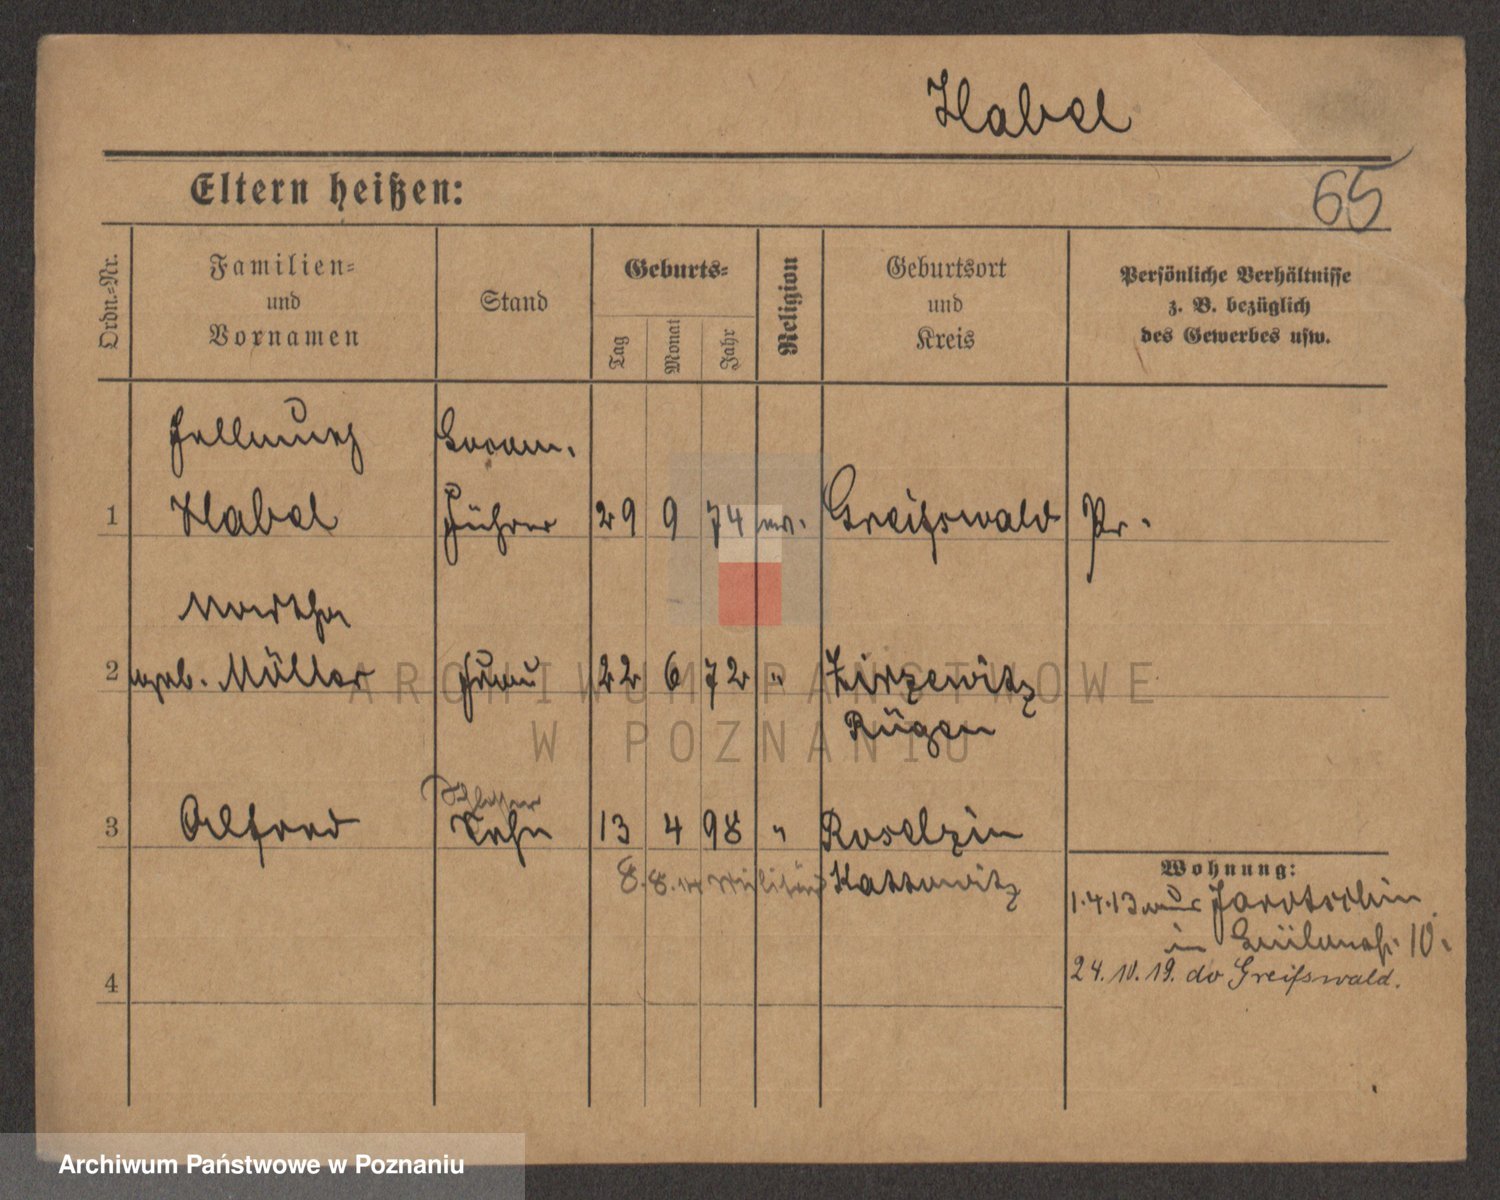 Habel
Eltern heißen:
65
Ordn.-Nr.
Familien-
und
Vornamen
Stand
Geburts-
Tag
Monat
Jahr
Religion
Geburtsort
und
Kreis
Persönliche Verhältnisse
z. B. bezüglich
des Gewerbes usw.
Hellmuth
1 Habel Führer 29 9 74 ev. Greifswald Pr.
Martha
2 geb. Müller Frau 22 6 72 " Zirzewitz
Rügen
3 Alfred Sohn 13 4 98 " Rosdzin
8. 8. Militär Kattowitz
Wohnung:
1.4.13 aus Jarotschin
in 10.
4
24.10.19. do Greifswald.
ARCHIWUM PAŃSTWOWE
W POZNANIU
Archiwum Państwowe w Poznaniu